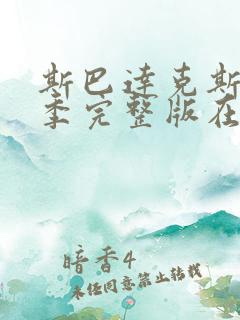 斯巴达克斯
季完整版在
暗香4
未经同意禁止转载